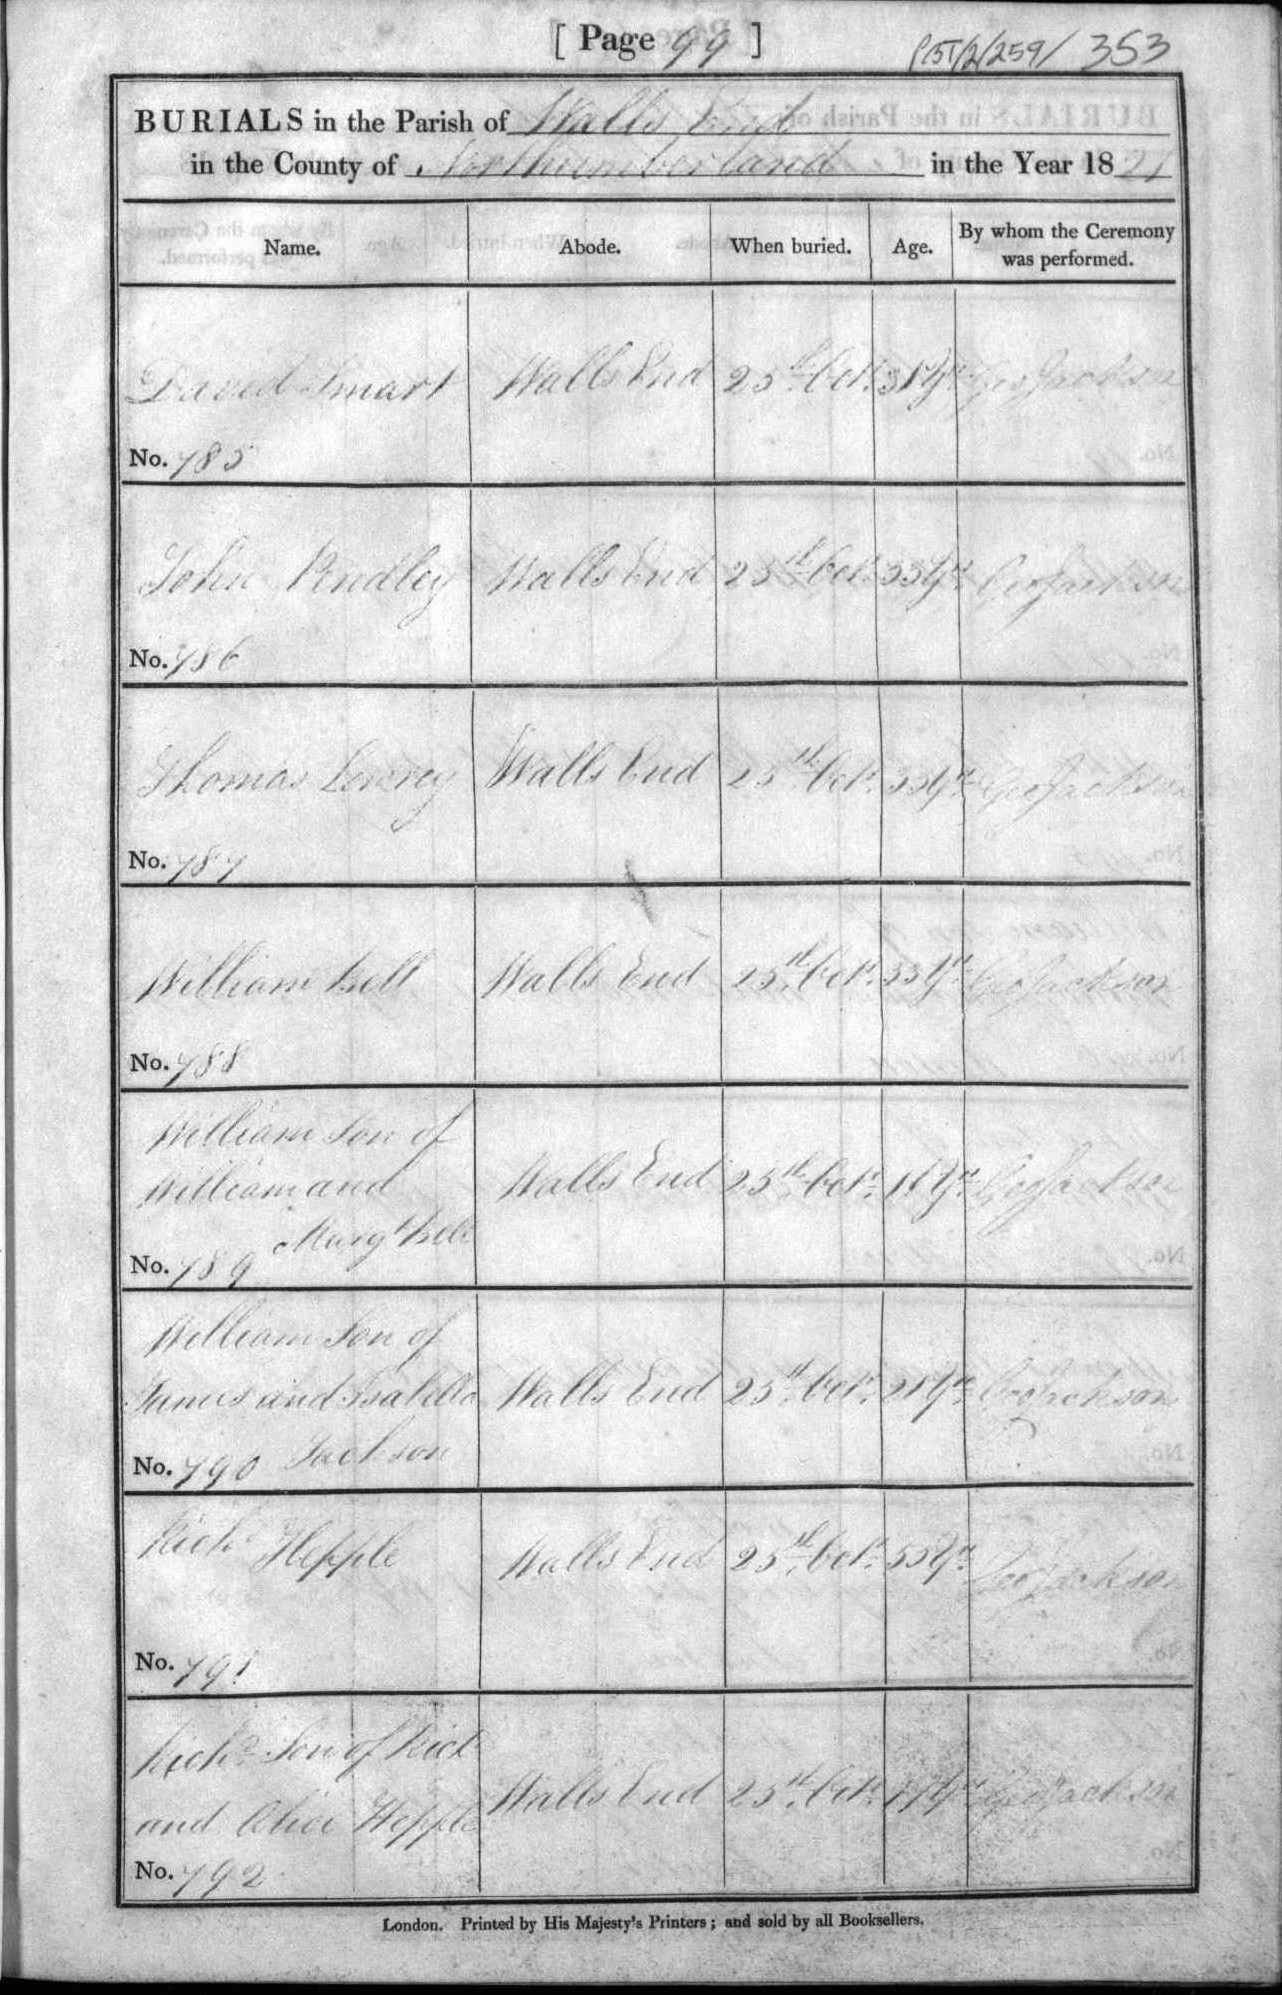 [ Page 99 ]
PBT/2/259/ 353
BURIALS in the Parish of Walls End
in the County of Northumberland in the Year 1821
Name. Abode. When buried. Age. By whom the Ceremony was performed.
David Smart Walls End 25th Octr. 31 Yrs Geo Jackson
No. 785
John Walls End 25th Octr. Yrs Geo Jackson
No. 786
Thomas Lowrey Walls End 25th Octr. Yrs Geo Jackson
No. 787
William Bell Walls End 25th Octr. Yrs Geo Jackson
No. 788
William Son of
William and Walls End 25th Octr. Yrs Geo Jackson
Margt Bell
No. 789
William Son of
James and Isabella Walls End 25th Octr. 21 Yrs Geo Jackson
Jackson
No. 790
Richd Hepple Walls End 25th Octr. Yrs Geo Jackson
No. 791
Richd Son of Richd
and Alice Hepple Walls End 25th Octr. Yrs Geo Jackson
No. 792
London. Printed by His Majesty's Printers; and sold by all Booksellers.